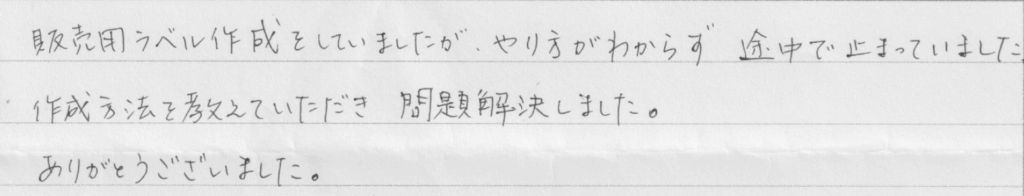 販売用ラベル作成をしていましたが、やり方がわからず 途中で止まっていました
作成方法を教えていただき 問題解決しました。
ありがとうございました。